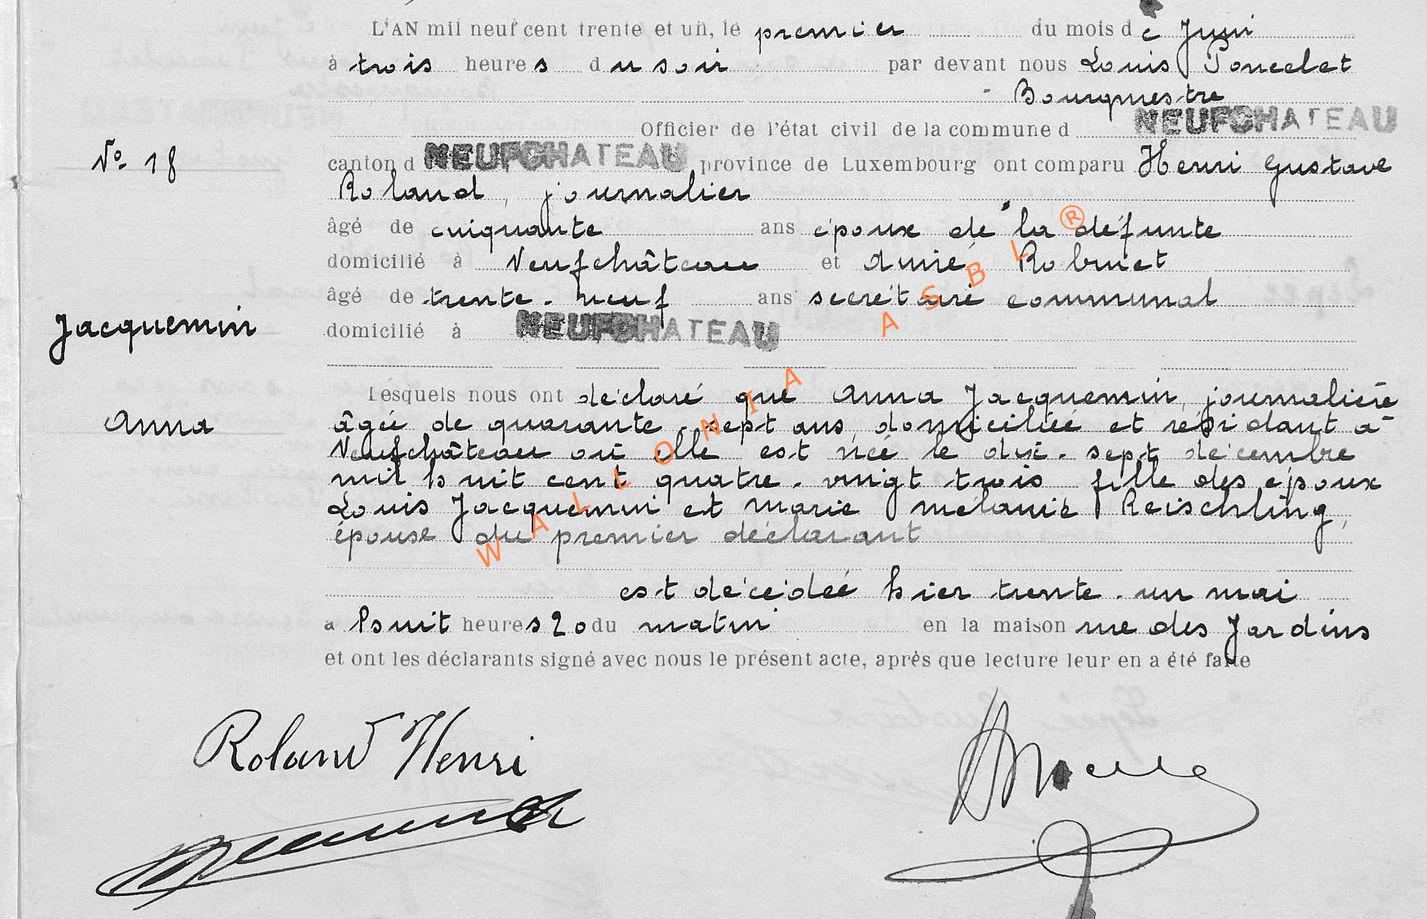 L'AN mil neuf cent trente et un, le premier du mois de Juin
à trois heures du soir par devant nous Louis Poncelet
Bourgmestre
Officier de l'état civil de la commune d NEUFCHATEAU
N° 18
canton d NEUFCHATEAU province de Luxembourg ont comparu Henri Gustave
Roland, journalier
âgé de cinquante ans époux de la défunte
domicilié à Neufchâteau et Aimé
âgé de trente-neuf ans secrétaire communal
Jacquemin
domicilié à NEUFCHATEAU
Lesquels nous ont déclaré que Anna Jacquemin, journalière
Anna
âgée de quarante-sept ans, domiciliée et résidant à
Neufchâteau où elle est née le dix-sept décembre
mil huit cent quatre-vingt trois fille des époux
Louis Jacquemin et Marie Mélanie Reischling,
épouse du premier déclarant
est décédée hier trente-un mai
à huit heures 20 du matin en la maison rue des Jardins
et ont les déclarants signé avec nous le présent acte, après que lecture leur en a été faite
Roland Henri
WALLONIA ASBL ®